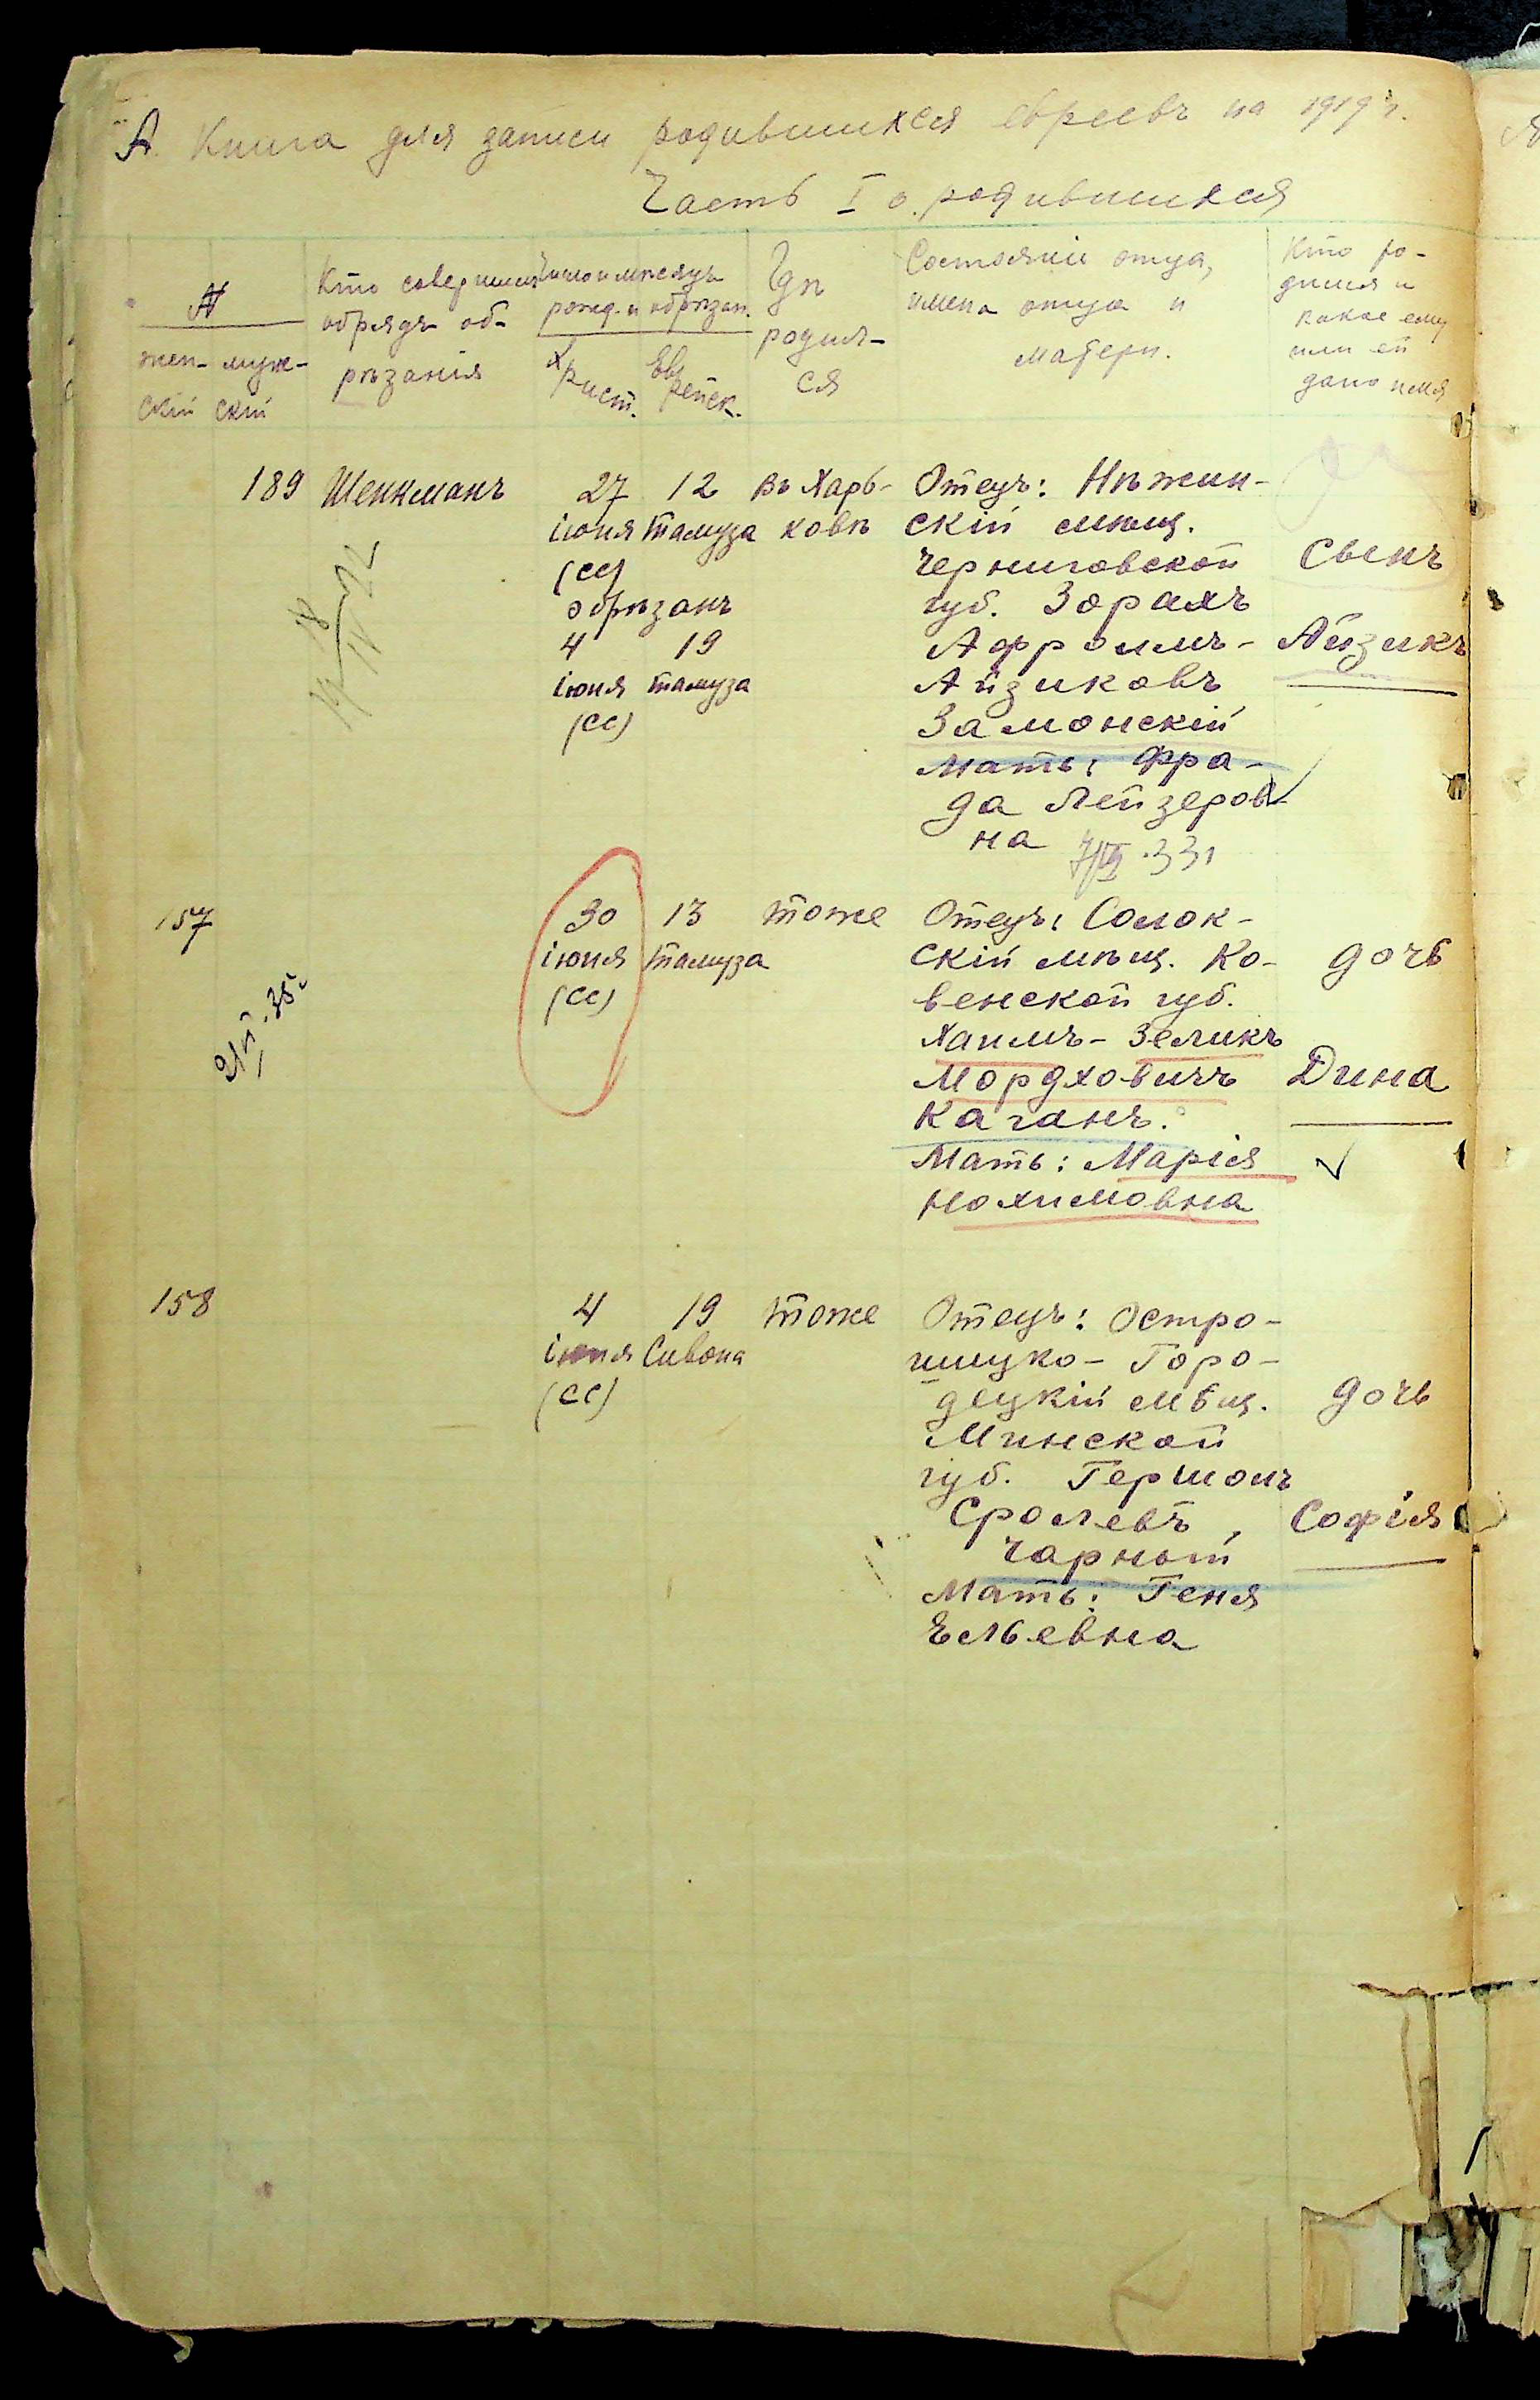 А. Книга для записи родившихся евреевъ на 1919 г.
Часть I о родившихся
№
жен- муж-
скій скій
Кто совершилъ
обрядъ об-
рѣзанія
Число и мѣсяцъ
рожд. и обрѣзан.
Христ. Еврейск.
Гдѣ
родил-
ся
Состояніе отца,
имена отца и
матери.
Кто ро-
дился и
какое ему
или ей
дано имя
189 Шенкманъ 27 12 въ Харь- Отецъ: Нѣжин-
іюня Тамуза ковѣ скій мѣщ.
(сс) Черниговской Сынъ
обрѣзанъ губ. Зорахъ
4 19 Афроимъ- Айзикъ
іюня Тамуза Айзиковъ
(сс) Замонскій
Мать: Фра-
да Лейзеров-
на
157 30 13 тоже Отецъ: Солок-
іюня Тамуза скій мѣщ. Ко- дочь
(сс) венской губ.
Хаимъ-Зеликъ
Мордховичъ Дина
Каганъ.
Мать: Марія
Нохимовна
158 4 19 тоже Отецъ: Остро-
іюня Сивона шицко-Горо-
(сс) децкій мѣщ. дочь
Минской
губ. Гершонъ
Сролевъ, Софія
Чарный
Мать: Геня
Ельевна